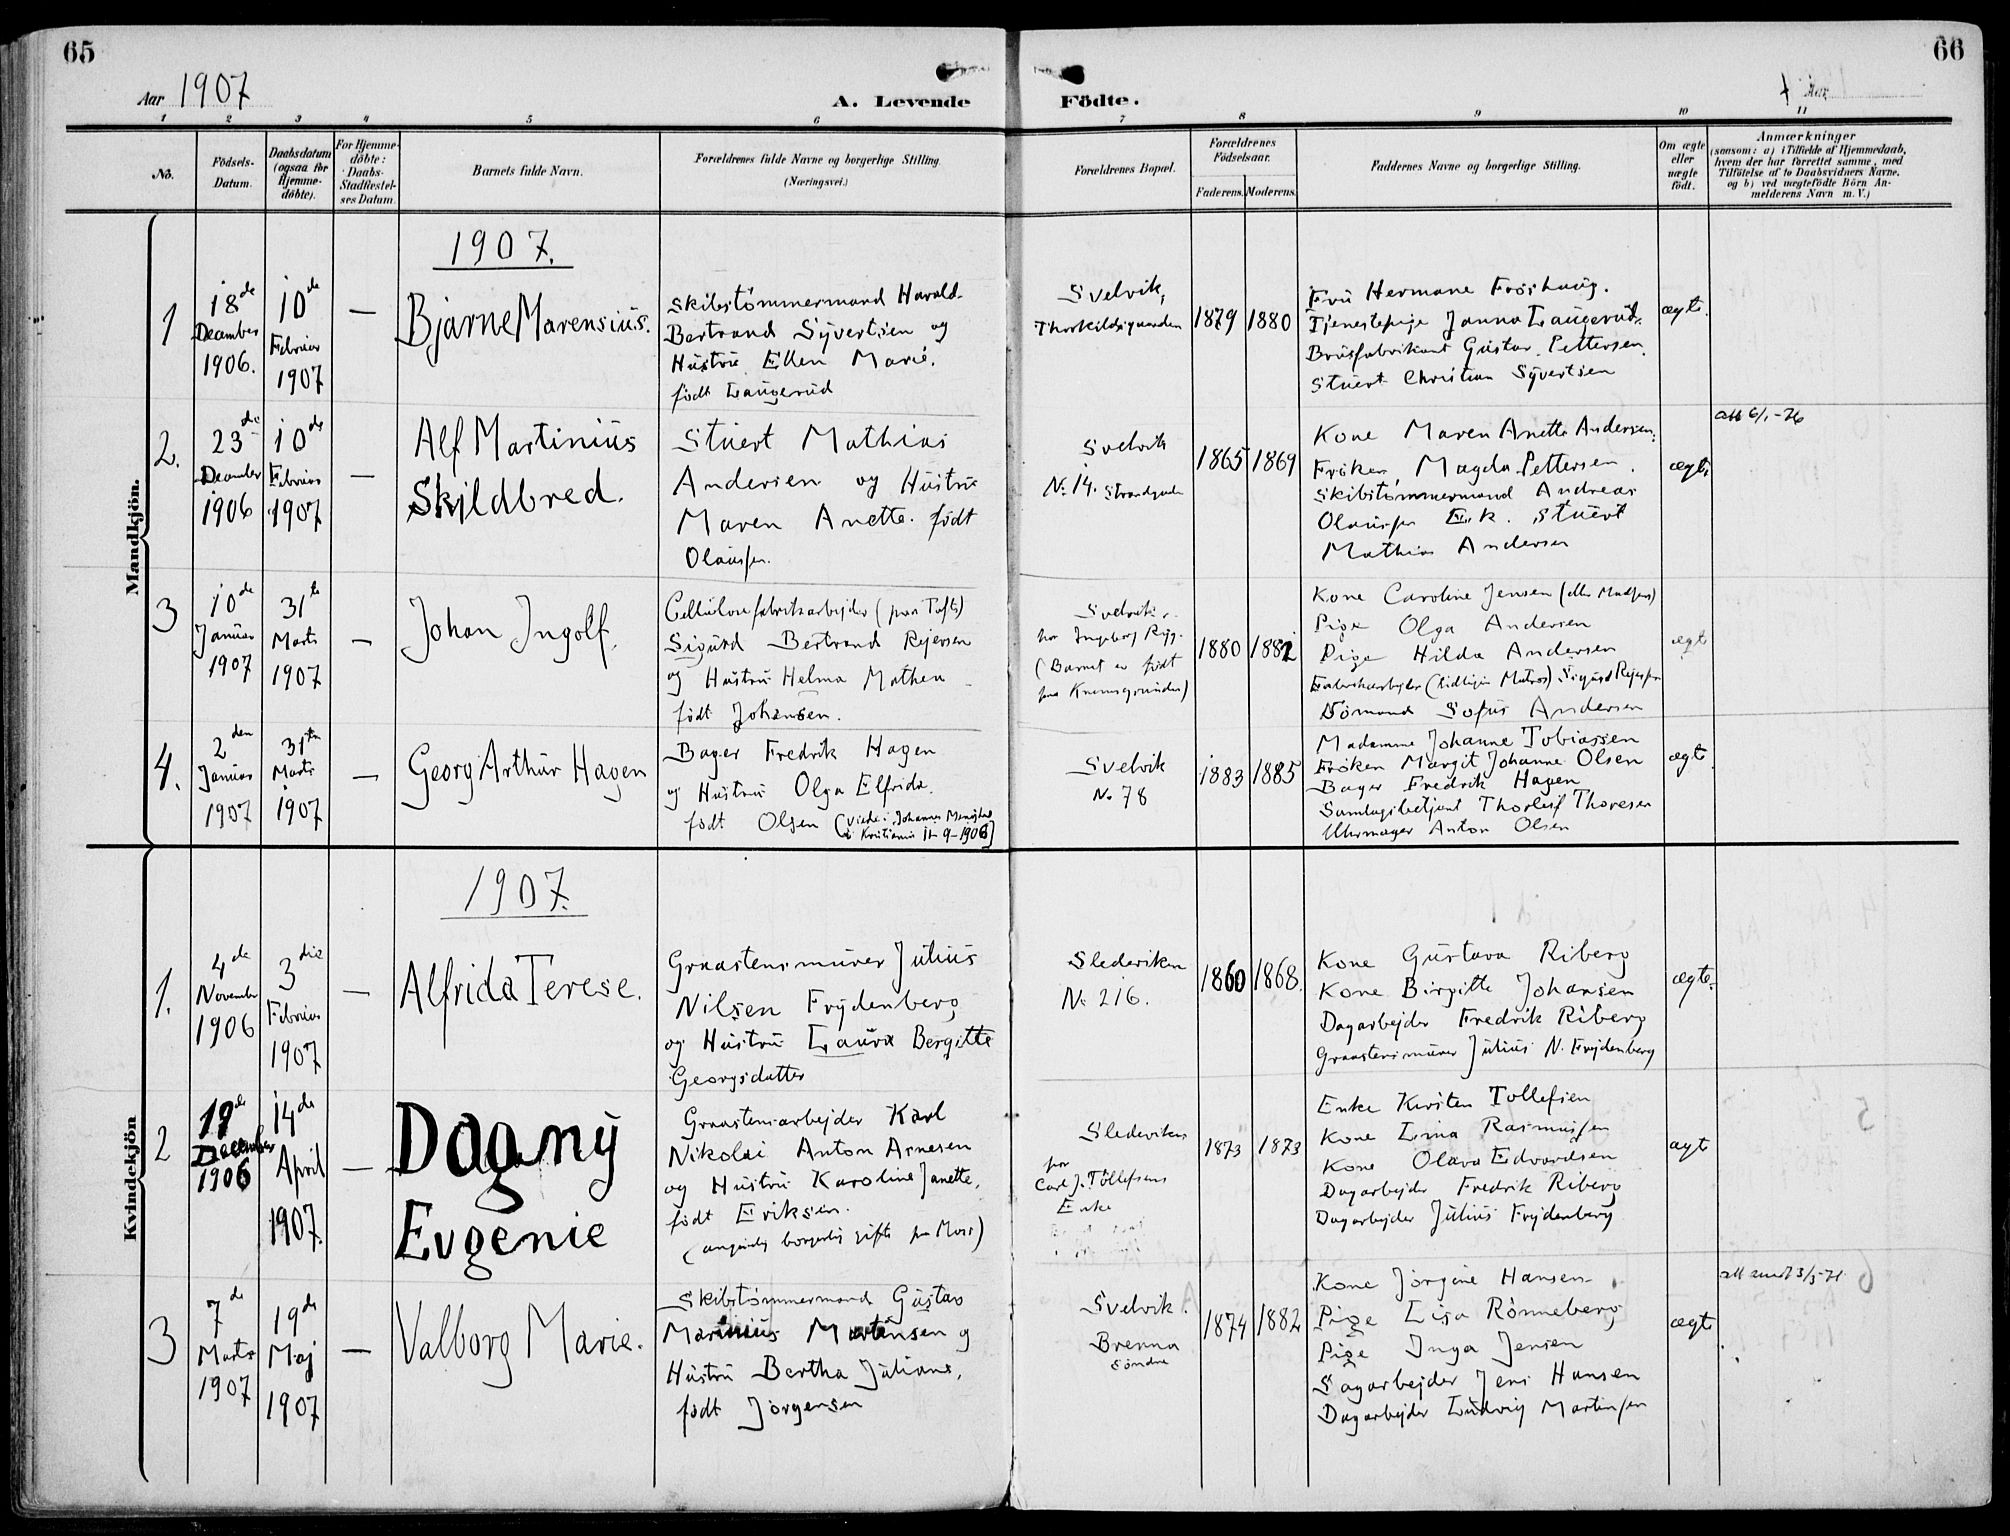 65
66
Aar 1907
A. Levende
Födte.
Aar
1 2 3 4 5 6 7 8 9 10 11
No.
Födsels-
Datum.
Daabsdatum
(ogsaa for
Hjemme-
döbte).
For Hjemme-
döbte:
Daabs-
Stadfæstel-
ses Datum.
Barnets fulde Navn.
Forældrenes fulde Navne og borgerlige Stilling.
(Næringsvei.)
Forældrenes Bopæl.
Forældrenes
Födselsaar.
Faderens. Moderens.
Faddernes Navne og borgerlige Stilling.
Om ægte
eller
uægte
födt.
Anmærkninger
(saasom: a) i Tilfælde af Hjemmedaab,
hvem der har forrettet samme, med
Tilföielse af to Daabsvidners Navne,
og b) ved uægtefödte Börn An-
melderens Navn m. V.)
Mandkjön.
1907.
1
18de
December
1906.
10de
Februar
1907
—
Bjarne Marensius.
Skibstömmermand Harald
Bertrand Syvertsen og
Hustru Ellen Marie.
födt Laugerud
Svelvik,
Thorkildsgaarden
1879
1880
Fru Hermane Froshaug.
Tjenestepige Janna Laugerud.
Brusfabrikant Gustav Pettersen.
Stuert Christian Syvertsen
ægte.
2.
23de
December
1906
10de
Februar
1907
—
Alf Martinius
Skjildbred.
Stuert Mathias
Andersen og Hustru
Maren Anette. födt
Olaussen.
Svelvik
No. 14. Strandgaden
1865
1869
Kone Maren Anette Andersen,
Fröken Magda Pettersen.
Skibstömmermand Andreas
Olaussen Ek. Stuert
Mathias Andersen
ægte
att 6/1-26
3
10de
Januar
1907
31te
Marts
1907
—
Johan Ingolf.
Cellulosefabrikarbejder (paa Tofte)
Sigurd Bertrand Rejersen
og Hustru Helma Mathea
födt Johansen.
Svelvik.
hos Ingeborg Rygg.
(Barnet er födt
paa Kremsgrunden)
1880
1882
Kone Caroline Jensen (eller Madsen)
Pige Olga Andersen
Pige Hilda Andersen
Fabrikarbejder (tidligere Matros) Sigurd Rejersen
Sömand Sofus Andersen
ægte
4.
2den
Januar
1907
31te
Marts
1907
—
Georg Arthur Hagen
Bager Fredrik Hagen
og Hustru Olga Elfrida.
födt Olsen (viede i Johannes Menighed
i Kristiania 11-9-1906)
Svelvik
No 78
1883
1885
Madamme Johanne Tobiassen
Fröken Margit Johanne Olsen
Bager Fredrik Hagen
Samlagsbetjent Thorleif Thoresen
Uhrmager Anton Olsen
ægte
Kvindekjön
1907.
1.
4de
November
1906
3die
Februar
1907
—
Alfrida Terese.
Graastensmurer Julius
Nilsen Frydenberg
og Hustru Laura Bergitte
Georgsdatter
Slederiken
No 216.
1860
1868.
Kone Gustava Riberg
Kone Birgitte Johansen
Dagarbejder Fredrik Riberg
Graastensmurer Julius N. Frydenberg
ægte.
2
19de
December
1906
14de
April
1907.
—
Dagny
Evgenie
Graastensarbejder Karl
Nikolai Anton Arnesen
og Hustru Karoline Janette,
födt Eriksen.
(angivelig borgerlig gifte paa Moss)
Slederiken
hos
Carl J. Tollefsens
Enke
1873
1873
Enke Kirsten Tollefsen
Kone Lina Rasmussen
Kone Olava Edvardsen
Dagarbejder Fredrik Riberg
Dagarbejder Julius Frydenberg
ægte
3
7de
Marts
1907
19de
Maj
1907
—
Valborg Marie.
Skibstömmermand Gustav
Marinius Martinsen og
Hustru Bertha Juliane,
födt Jörgensen
Svelvik.
Brenna
Söndre
1874
1882
Kone Jörgine Hansen
Pige Lisa Rönneberg
Pige Inga Jensen
Sagarbejder Jens Hansen
Dagarbejder Ludvig Martinsen
ægte